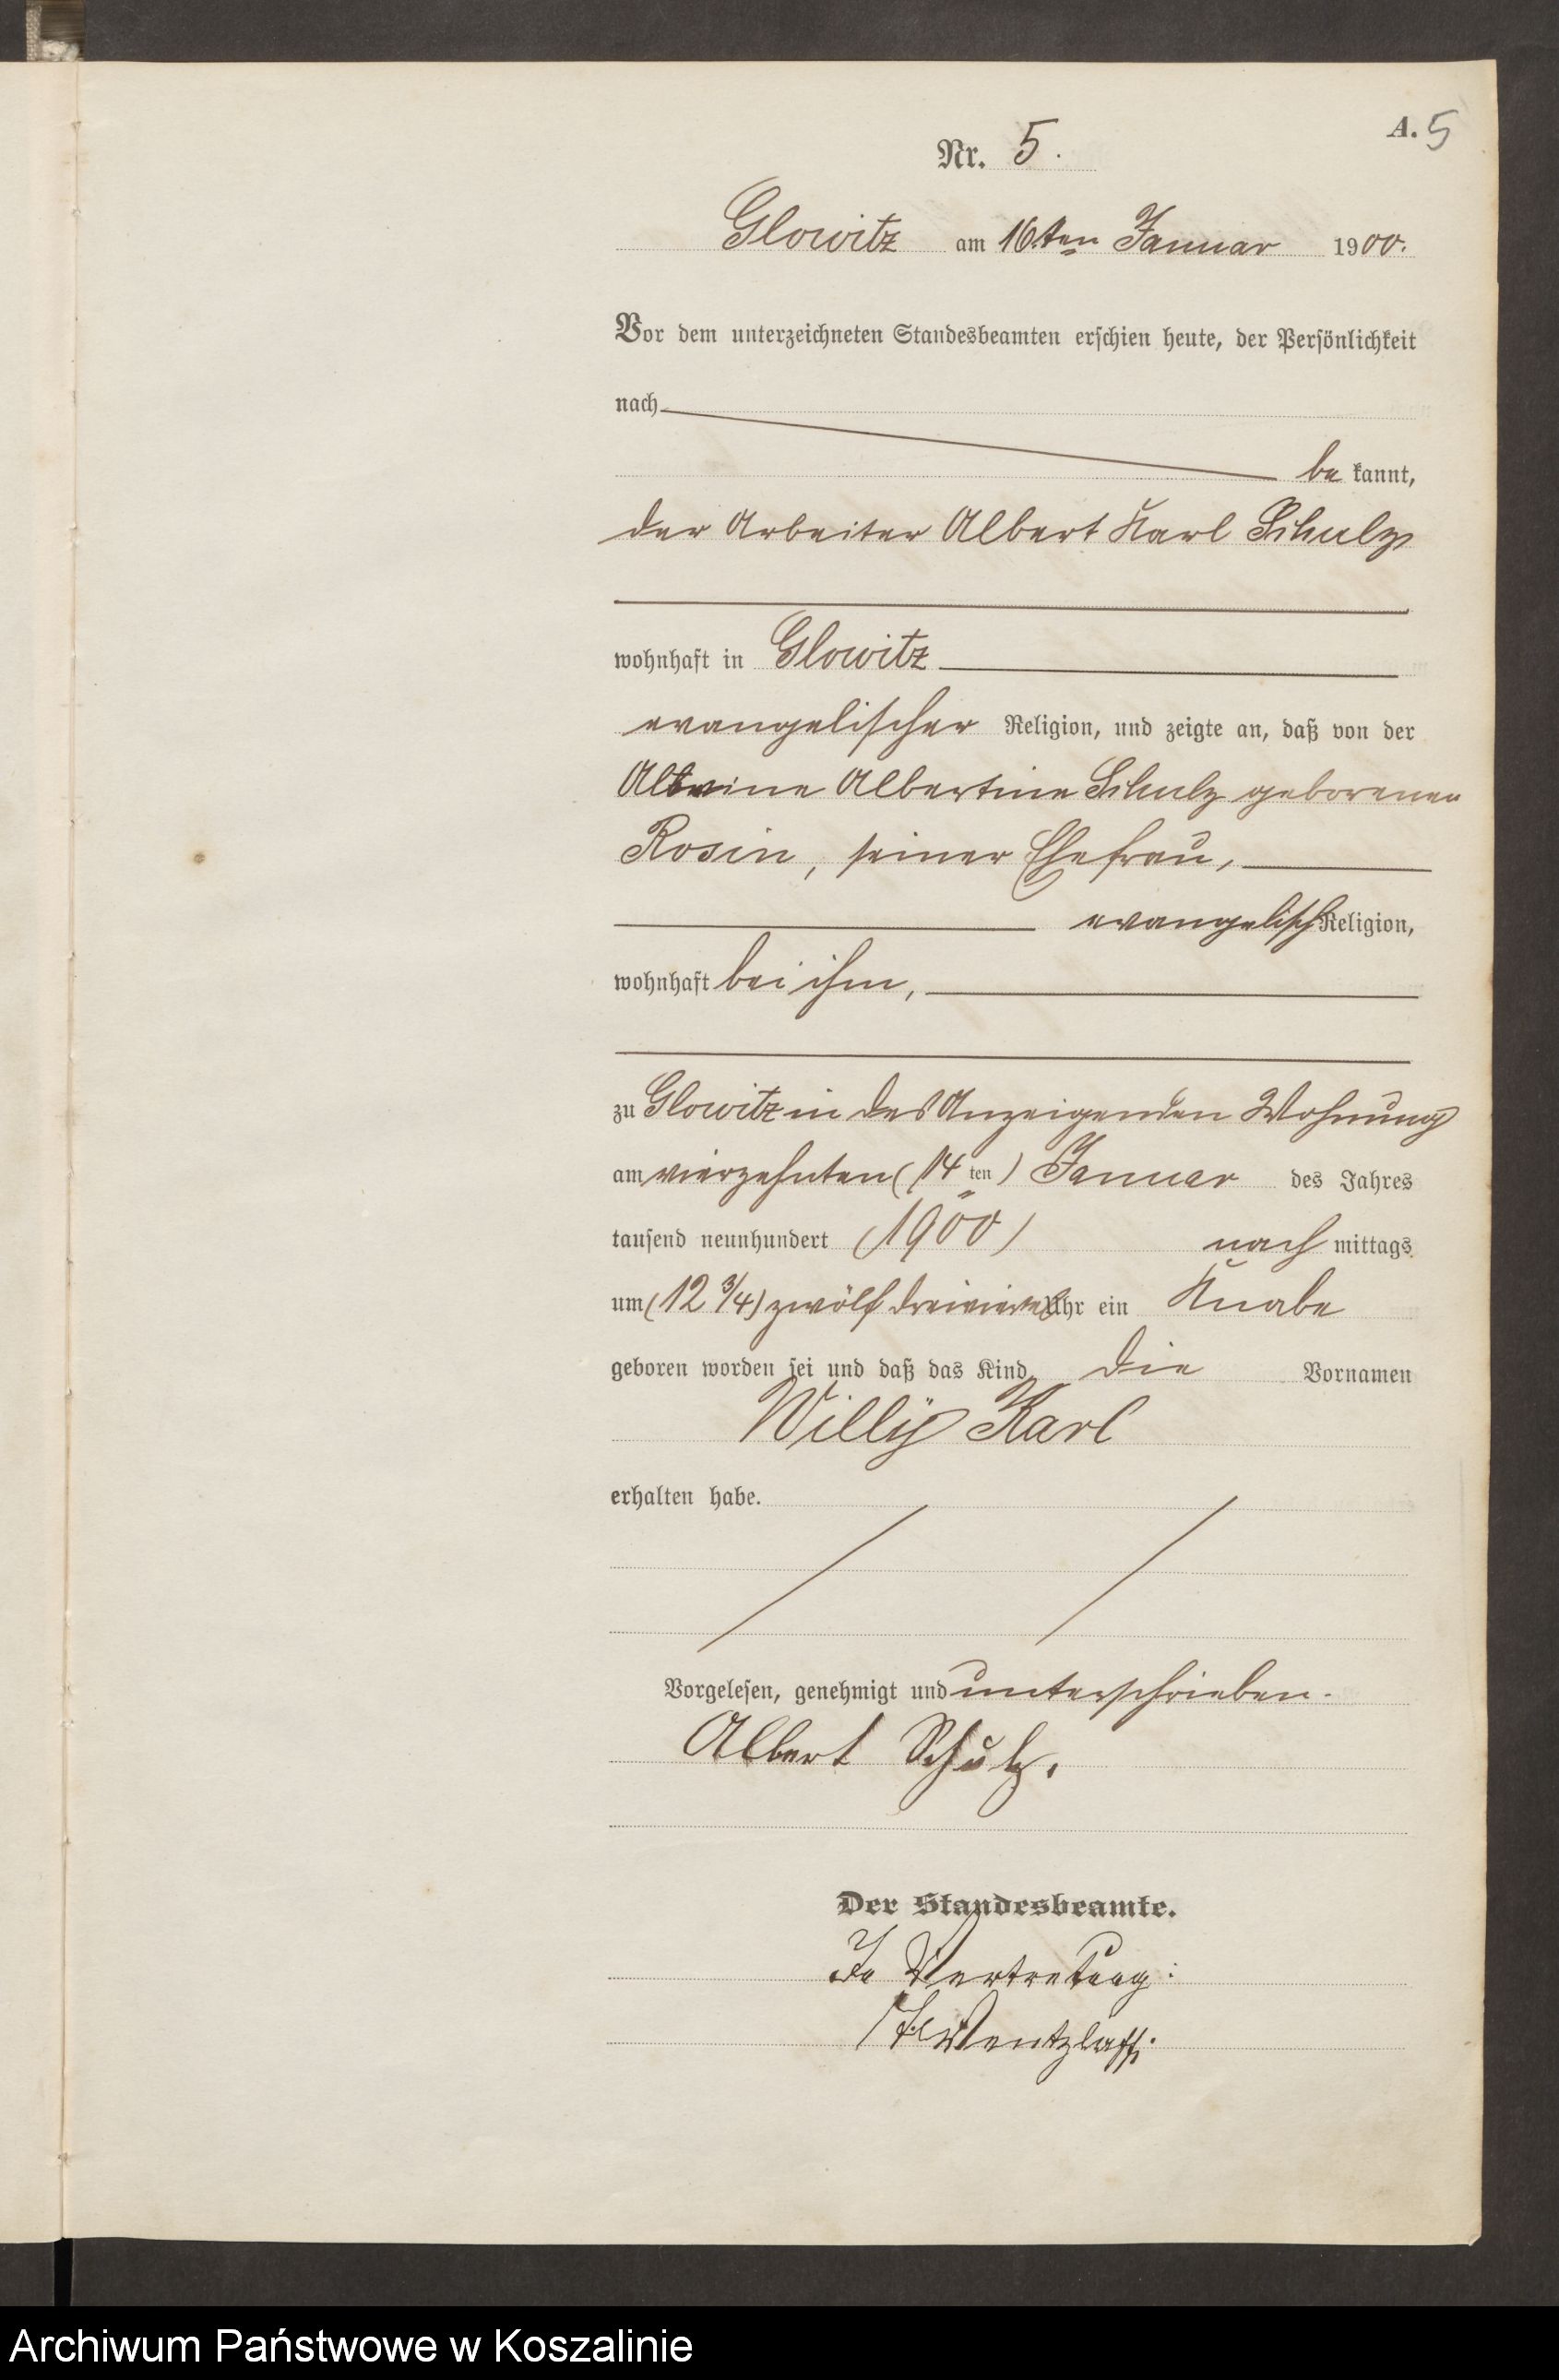 A. 5
Nr. 5.
Glowitz am 16ten Januar 1900.
Vor dem unterzeichneten Standesbeamten erschien heute, der Persönlichkeit
nach
be kannt,
der Arbeiter Albert Karl Schulz
wohnhaft in Glowitz
evangelischer Religion, und zeigte an, daß von der
Albertine Schulz geborenen
Rosin, seiner Ehefrau,
evangelisch Religion,
wohnhaft bei ihm,
zu Glowitz in des Anzeigenden Wohnung
am vierzehnten (14 ten) Januar des Jahres
tausend neunhundert (1900) nach mittags
um (12 3/4) zwölf dreiviertel Uhr ein Knabe
geboren worden sei und daß das Kind die Vornamen
Willÿ Karl
erhalten habe.
Vorgelesen, genehmigt und unterschrieben.
Albert Schulz.
Der Standesbeamte.
In Vertretung:
Wentzlaff.
Archiwum Państwowe w Koszalinie